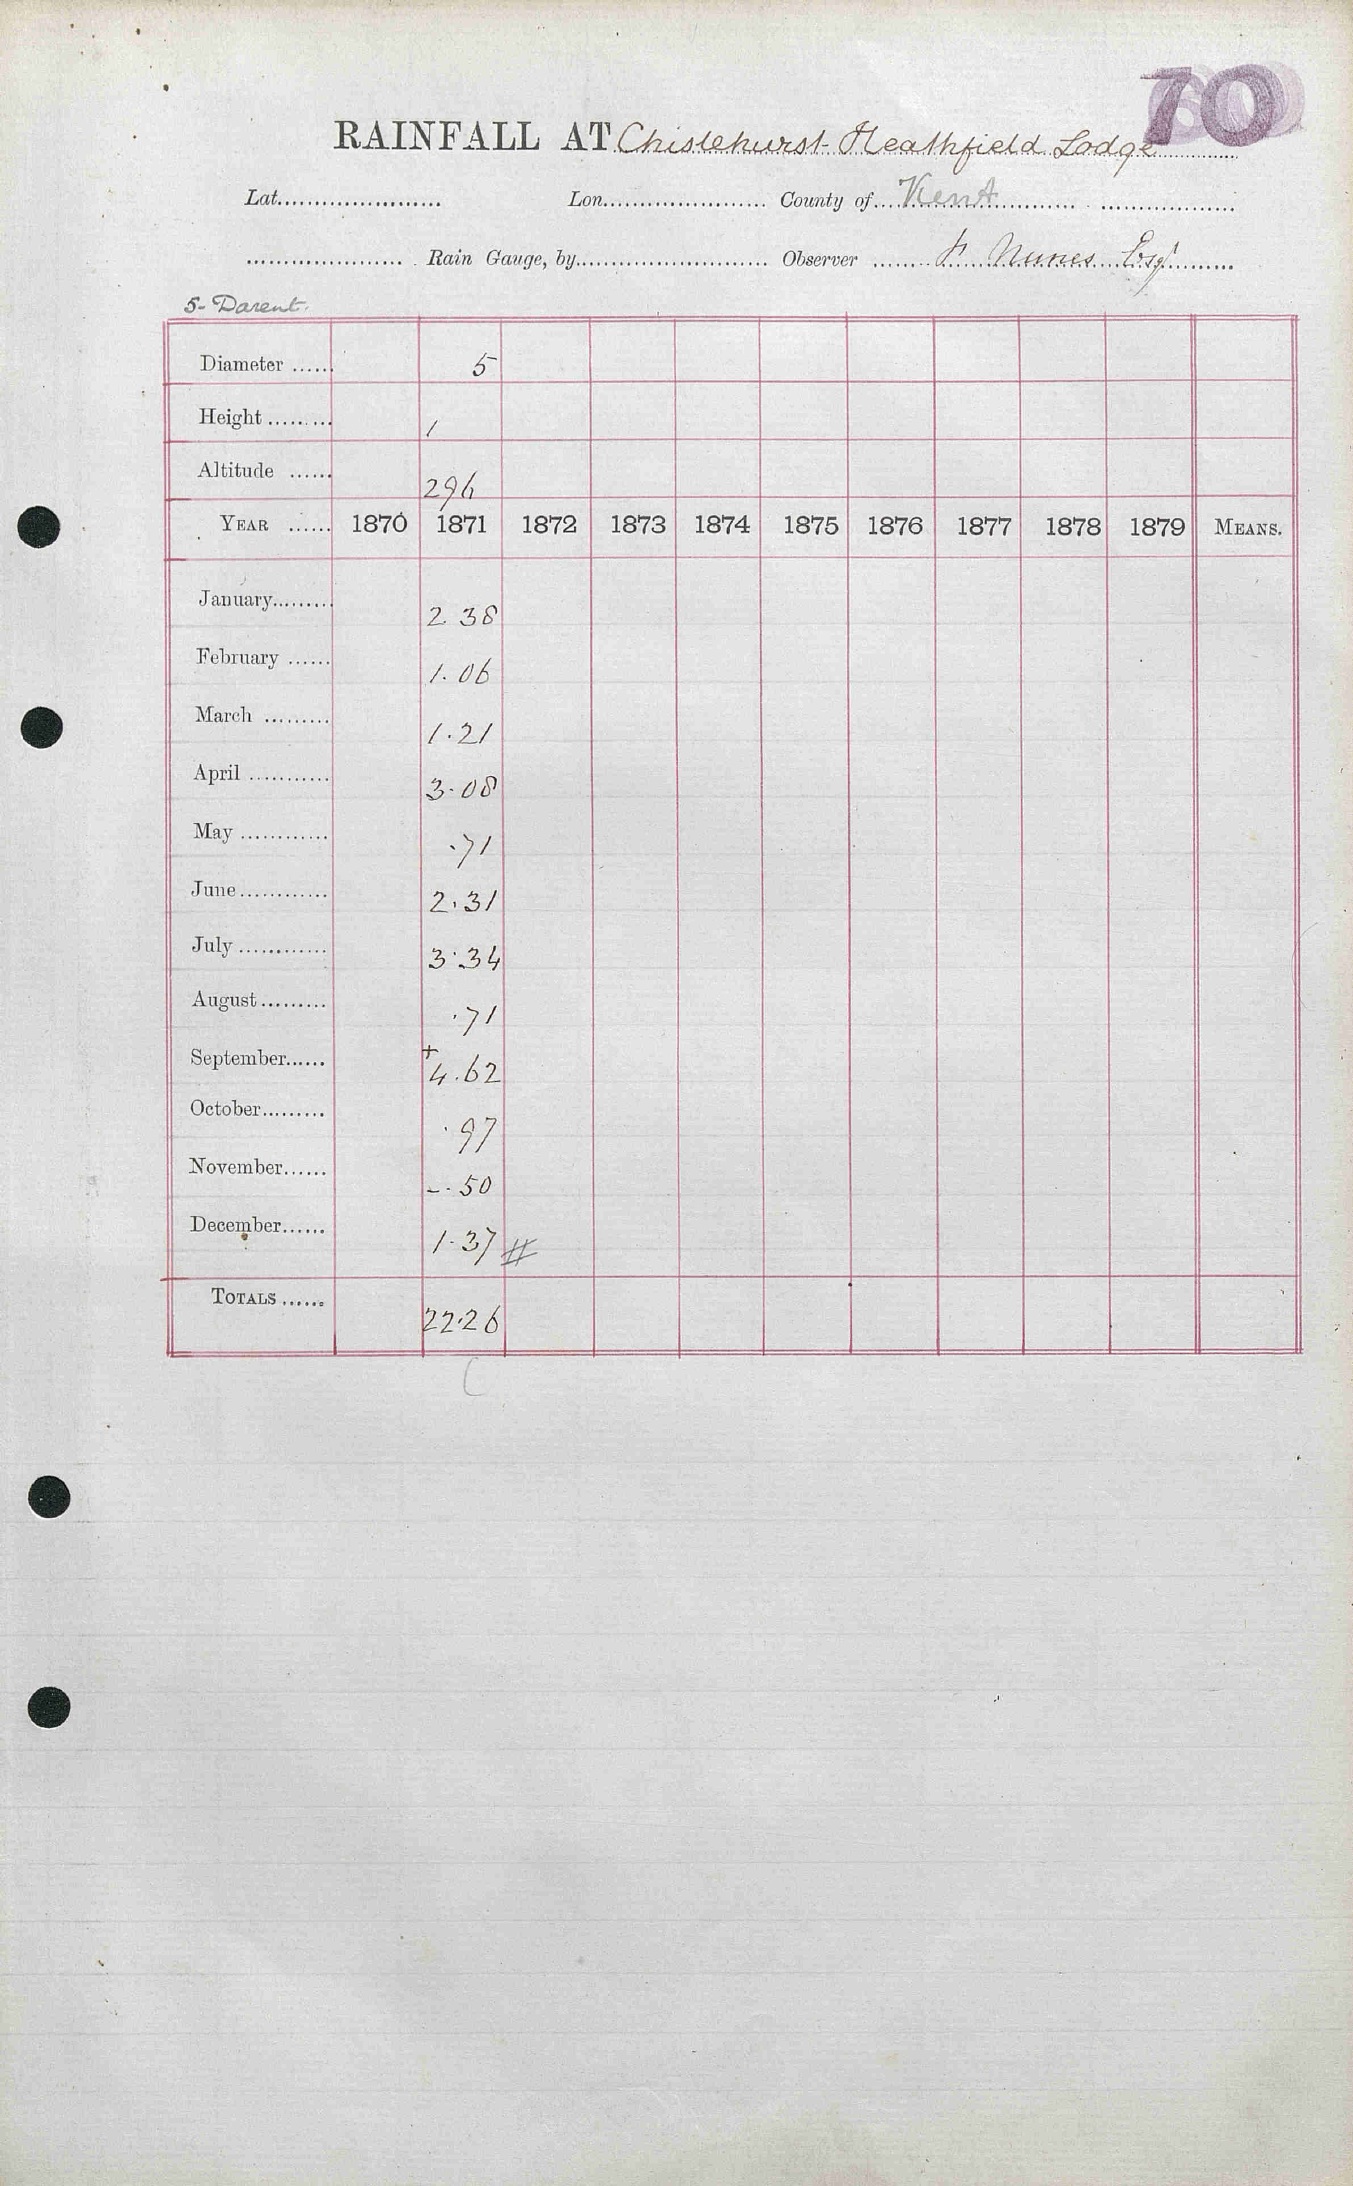 70
RAINFALL AT Chislehurst- Heathfield Lodge
Lat. Lon. County of Kent
Rain Gauge, by Observer Nunes Esqr
5- Darent.
Diameter ...... 5
Height ......... 1
Altitude ...... 296
YEAR ...... 1870 1871 1872 1873 1874 1875 1876 1877 1878 1879 MEANS.
January......... 2 38
February ...... 1.06
March ......... 1.21
April ........... 3.08
May ............ .71
June............ 2.31
July ............ 3.34
August......... .71
September...... + 4.62
October......... .97
November...... -.50
December...... 1.37 #
TOTALS ...... 22.26
C